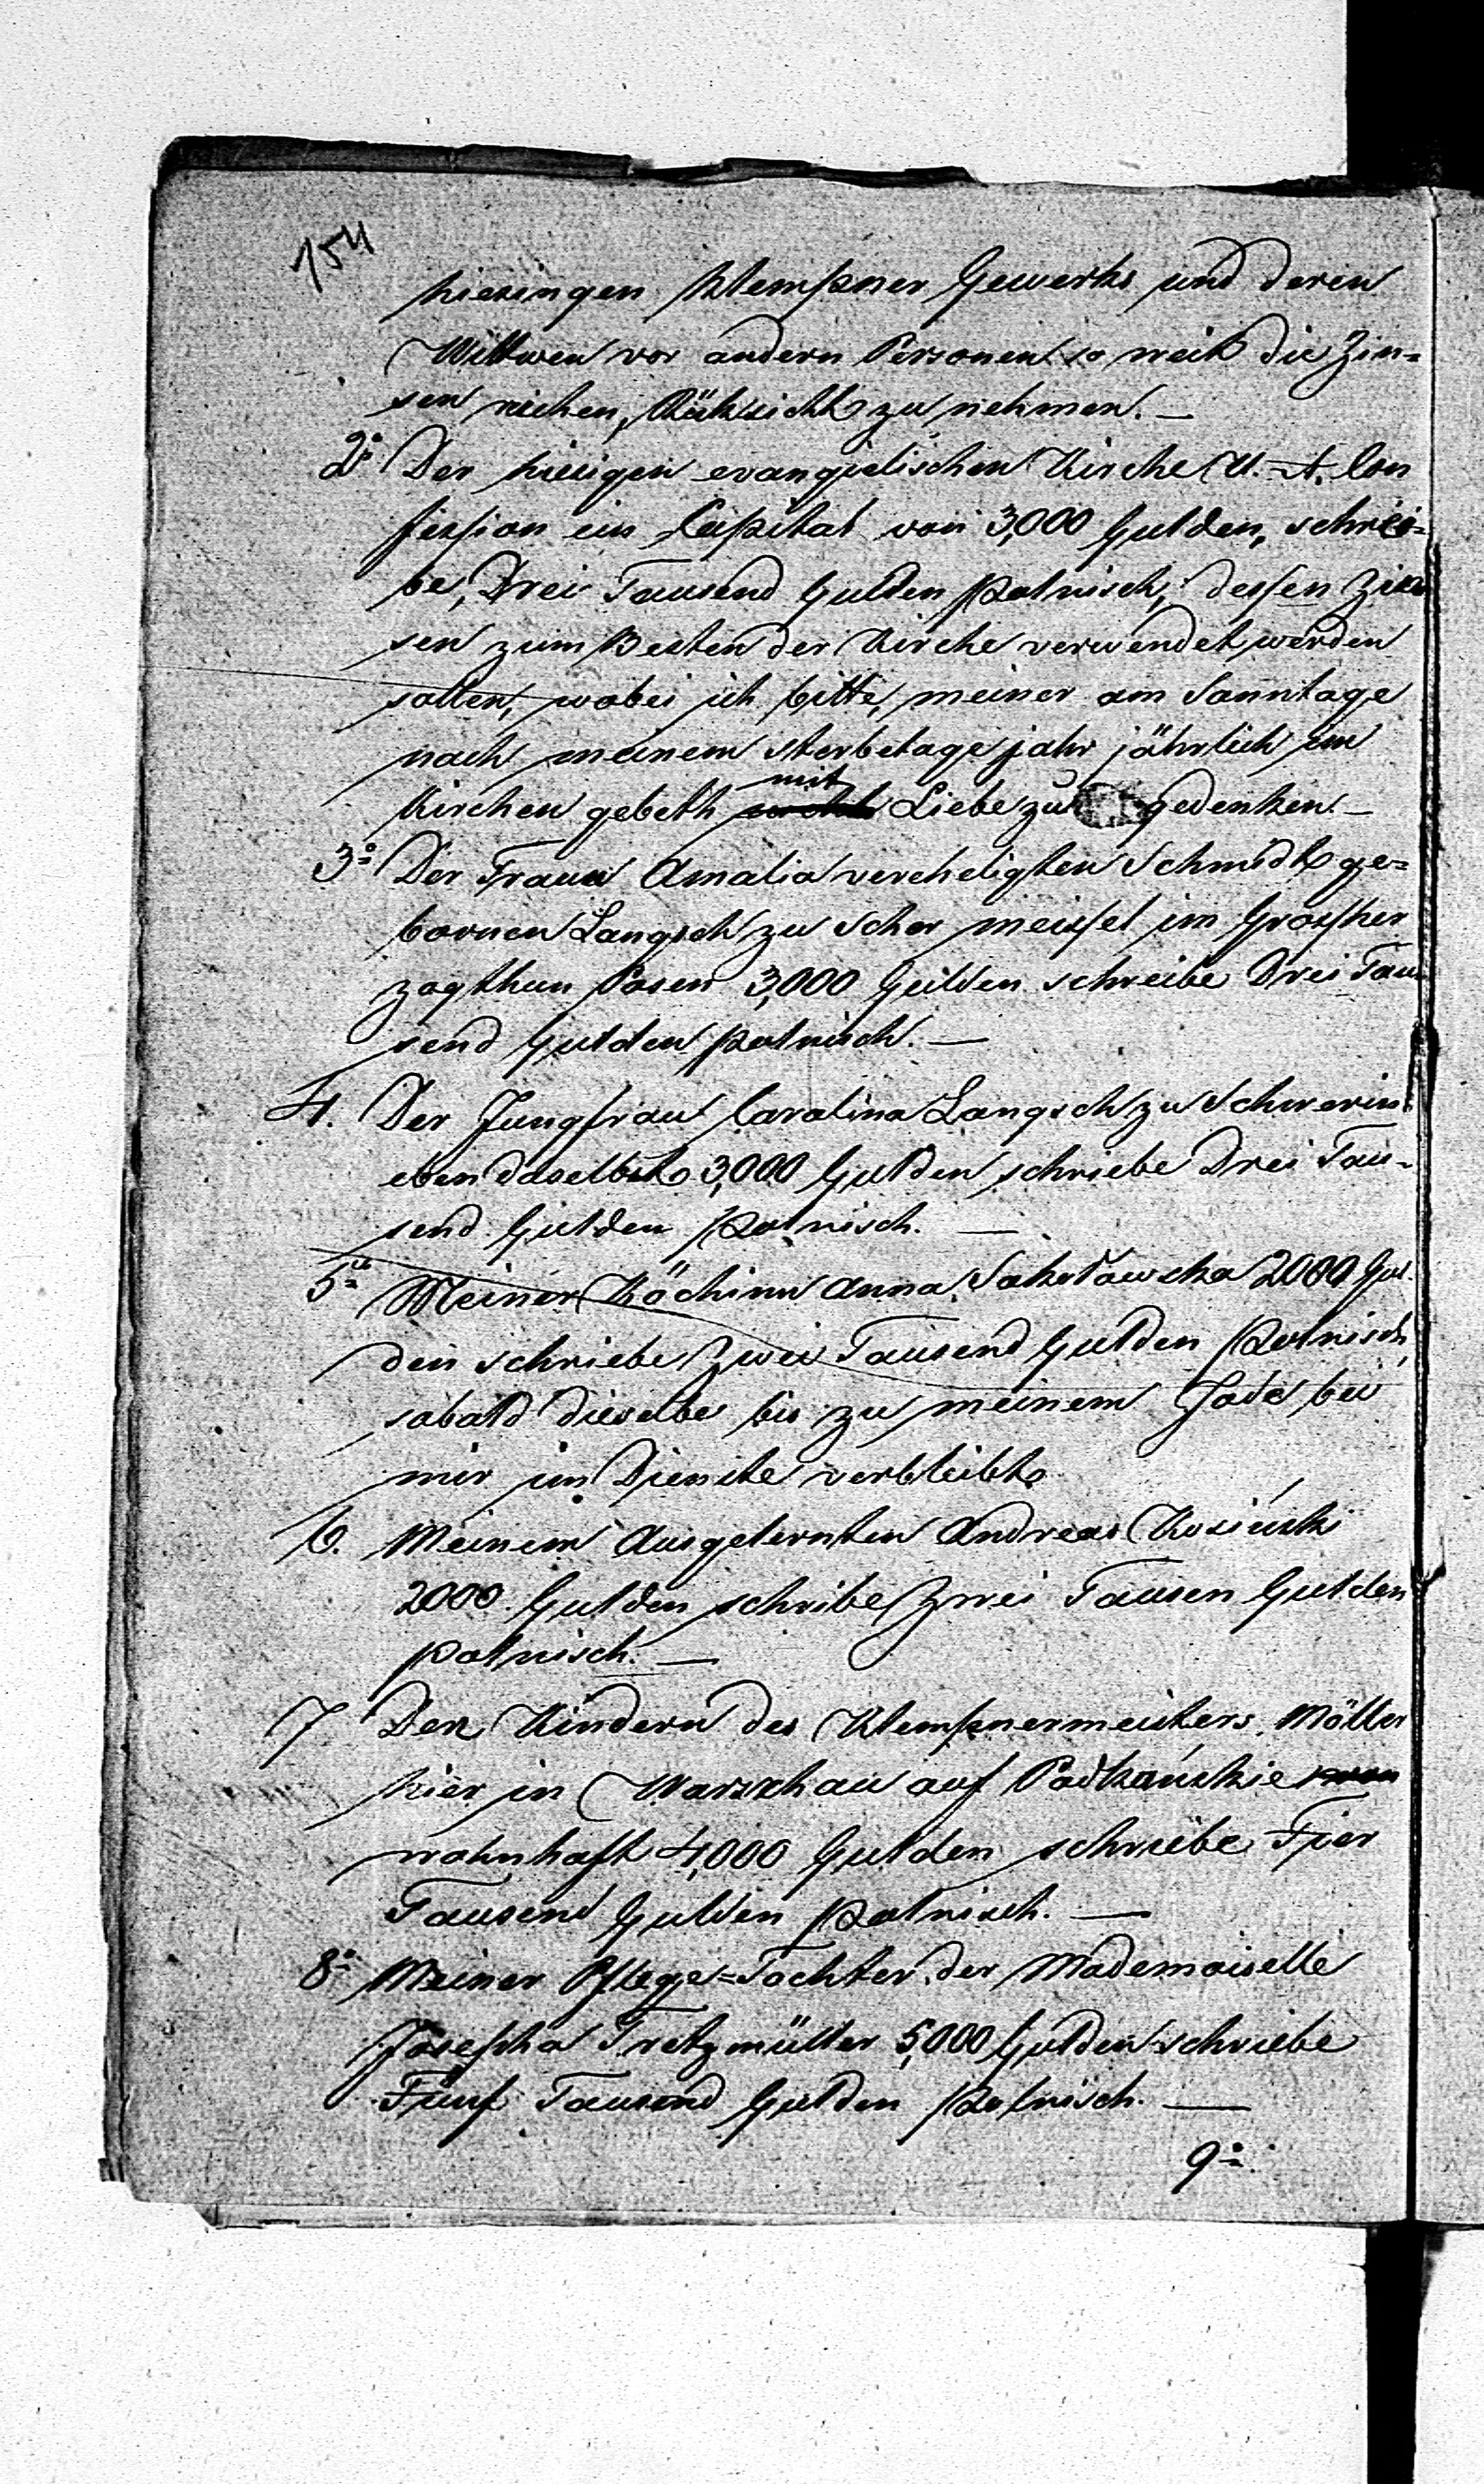 154
hiesingen Klempner Gewerks und deren
Wittwen vor andern Personen so weit die Zin=
sen reichen, Rüksicht zu nehmen. —
2º Der hiesigen evangielischen Kirche U. A. Con
fession ein Capital von 3,000 Gulden, schrei=
be, Drei Tausend Gulden polnisch, dessen Zin
sen zum Besten der Kirche verwendet werden
sollen, wobei ich bitte, meiner am Sonntage
nach meinem Sterbetage jahr jährlich im
Kirchen gebeth mit Liebe zu gedenken. —
3º Der Frauu Amalia vereheligten Schmidt ge=
bornen Langsch zu Scher meissel im Grosher
zogthun Posen 3,000 Gulden schreibe Drei Tau
send Gulden polnisch. —
4. Der Jungfrau Carolina Langsch zu Schwerin
eben daselbst 3,000 Gulden schriebe Drei Tau-
send Gulden polnisch. —
5º Meiner Köchinn Anna Sokołowska 2000 Gul.
den schriebe Zwei Tausend Gulden polnisch,
sobald dieselbe bis zu meinem Tode bei
mir im Dienste verbleibt
6. Meinem Ausgelernten Andreas Kosiński
2000. Gulden schribe Zwei Tausen Gulden
polnisch. —
7 Den Kindern des Klempnermeisters, Möller
hier in Warschau auf Podkańskie
wohnhaft 4,000 Gulden schriebe Fier
Tausend Gulden polnisch. —
8º Meiner Pflege=Tochter der Mademoiselle
Josepha Tretzmüller 5,000 Gulden schriebe
Fünf Tausend Gulden polnisch. —
9º